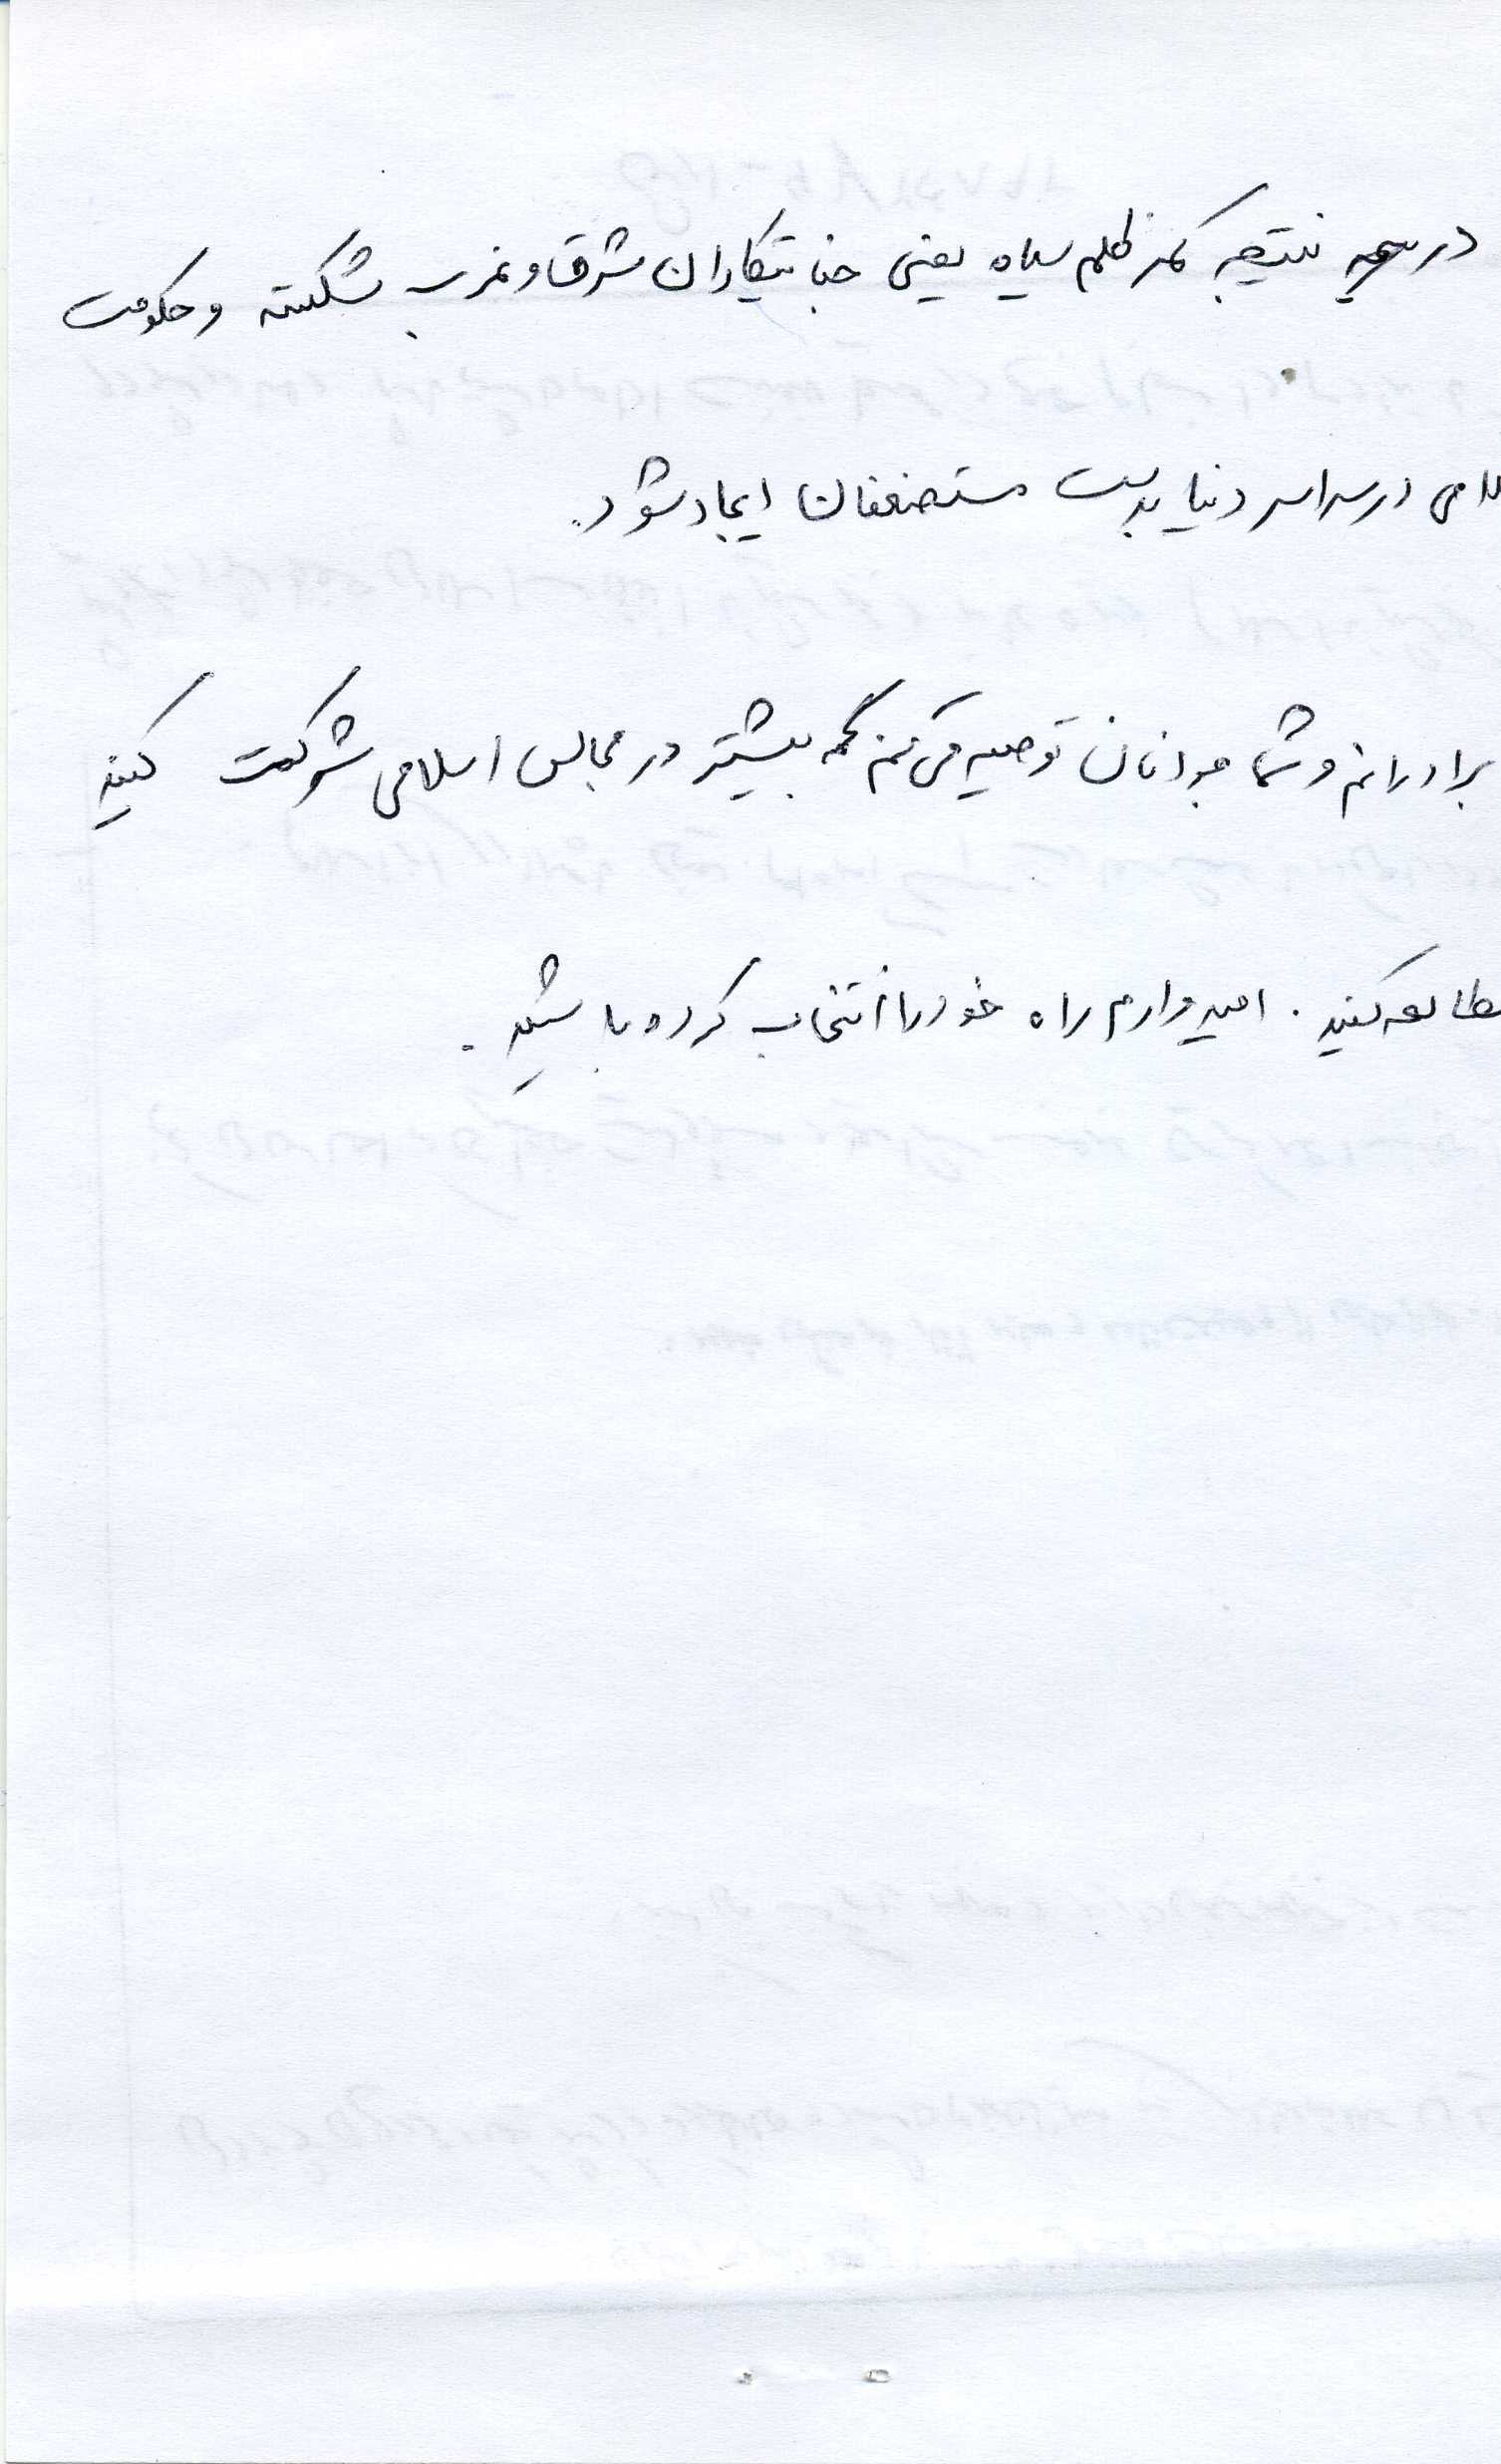 در نتیجه کمر ظلم سیاه یعنی جنایتکاران شرق و غرب شکسته و حکومت
لامی در سراسر دنیا بدست مستضعفان ایجاد شود.
برادرانم و شما جوانان توصیه می کنم که بیشتر در مجالس اسلامی شرکت کنید
طالعه کنید. امیدوارم راه خود را انتخاب کرده باشید.